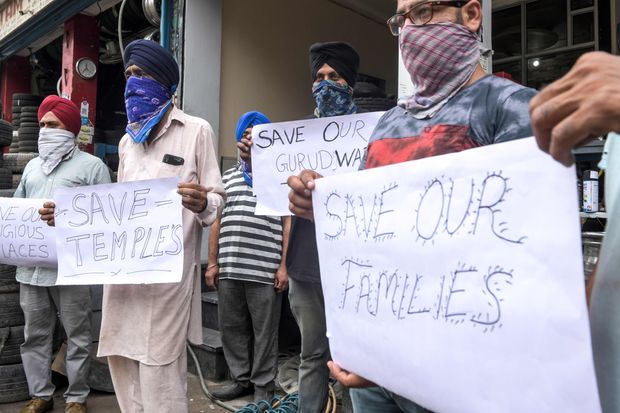 AVE OU
IGIOUS
LACES
SAVE –
TEMPLE'S
SAVE OUR
GURUDWA
SAVE OUR
FAMILIES